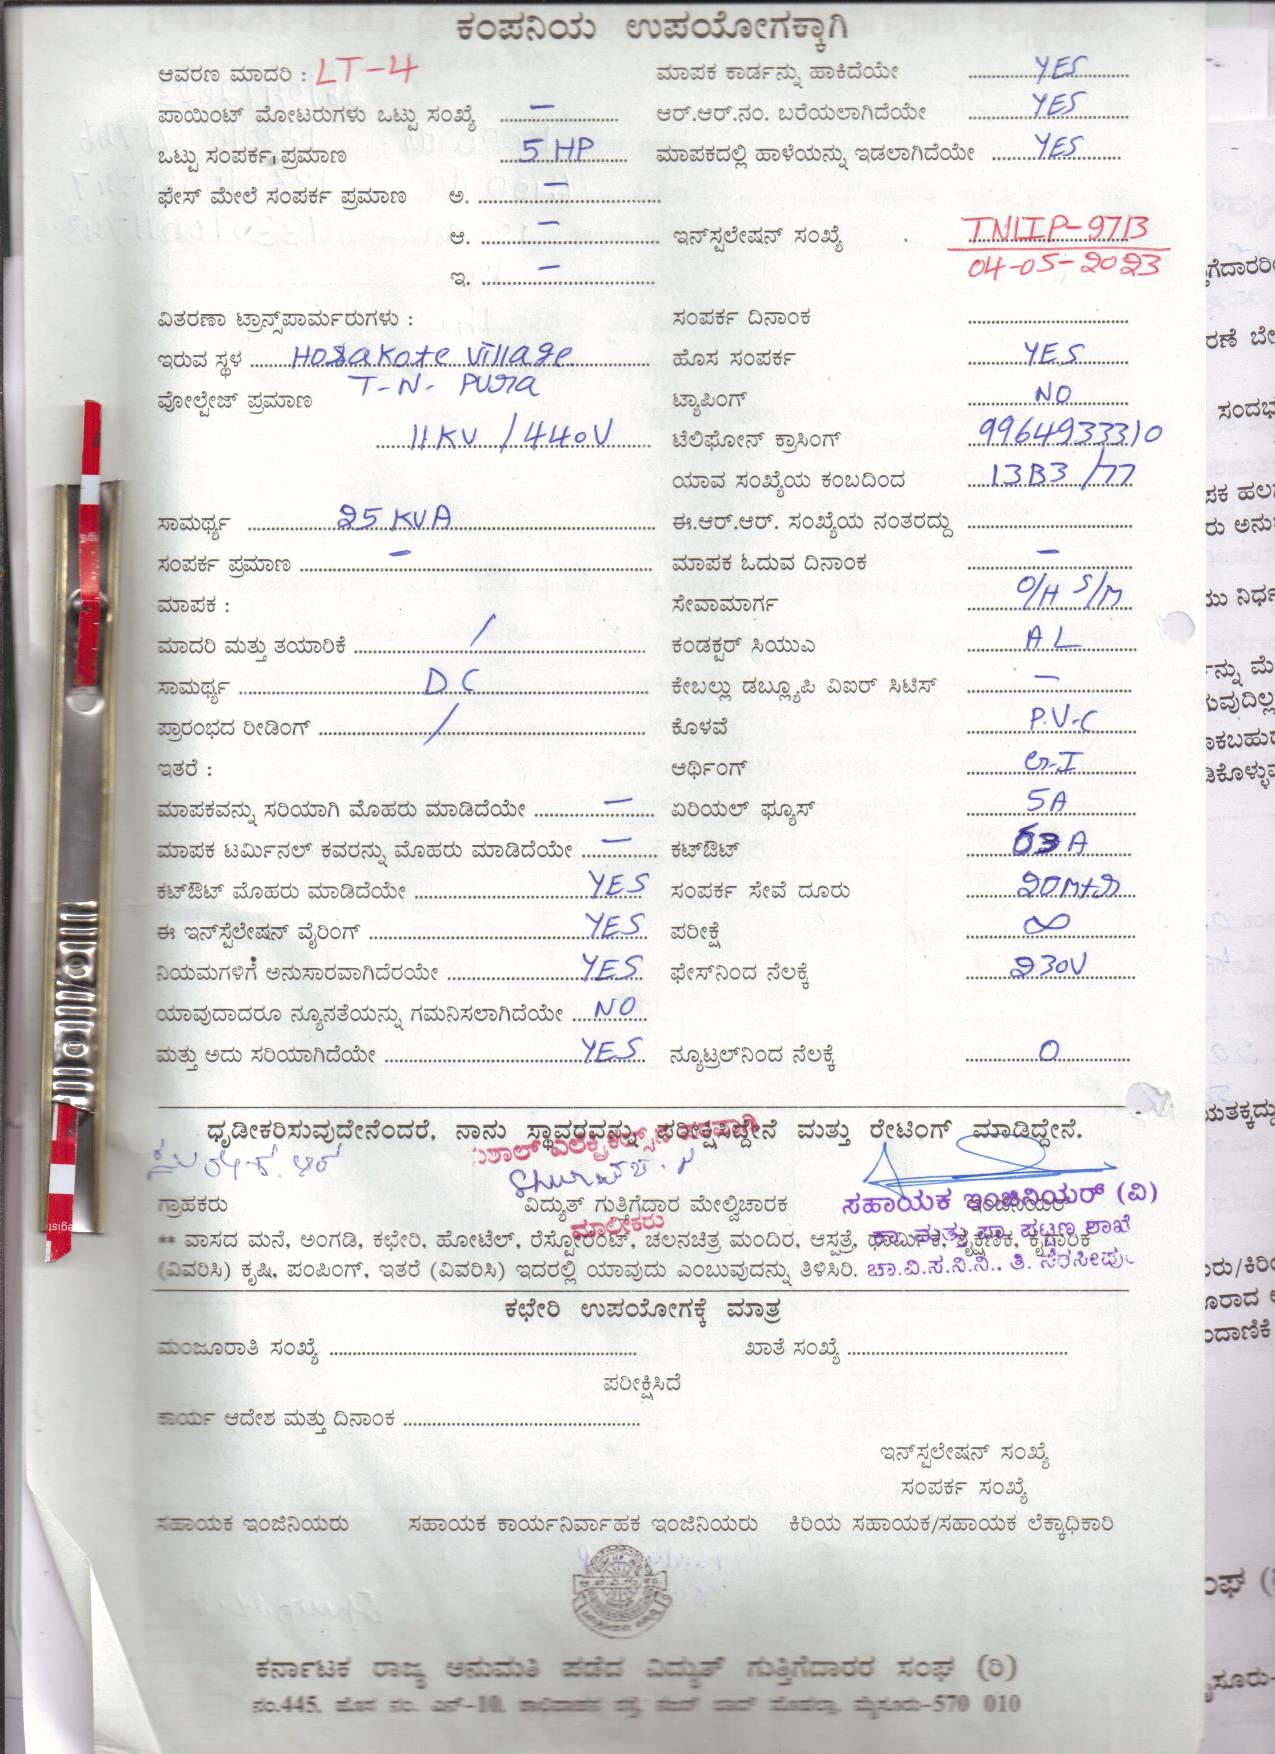 ಕಂಪನಿಯ ಉಪಯೋಗಕ್ಕಾಗಿ
ಆವರಣ ಮಾದರಿ : LT-4 ಮಾಪಕ ಕಾರ್ಡನ್ನು ಹಾಕಿದೆಯೇ YES
ಪಾಯಿಂಟ್ ಮೋಟರುಗಳು ಒಟ್ಟು ಸಂಖ್ಯೆ — ಆರ್.ಆರ್.ನಂ. ಬರೆಯಲಾಗಿದೆಯೇ YES
ಒಟ್ಟು ಸಂಪರ್ಕ ಪ್ರಮಾಣ 5 HP ಮಾಪಕದಲ್ಲಿ ಹಾಳೆಯನ್ನು ಇಡಲಾಗಿದೆಯೇ YES
ಫೇಸ್ ಮೇಲೆ ಸಂಪರ್ಕ ಪ್ರಮಾಣ ಅ. —
ಆ. — ಇನ್‌ಸ್ಪಲೇಷನ್ ಸಂಖ್ಯೆ TNLIP-9713
ಇ. — 04-05-2023
ವಿತರಣಾ ಟ್ರಾನ್ಸ್‌ಪಾರ್ಮರುಗಳು : ಸಂಪರ್ಕ ದಿನಾಂಕ
ಇರುವ ಸ್ಥಳ Hosakote Village ಹೊಸ ಸಂಪರ್ಕ YES
T-N- Pura
ವೋಲ್ಟೇಜ್ ಪ್ರಮಾಣ ಟ್ಯಾಪಿಂಗ್ NO
11KV / 440V ಟೆಲಿಫೋನ್ ಕ್ರಾಸಿಂಗ್ 9964933310
ಯಾವ ಸಂಖ್ಯೆಯ ಕಂಬದಿಂದ 13B3 /77
ಸಾಮರ್ಥ್ಯ 25 KVA ಈ.ಆರ್.ಆರ್. ಸಂಖ್ಯೆಯ ನಂತರದ್ದು
ಸಂಪರ್ಕ ಪ್ರಮಾಣ — ಮಾಪಕ ಓದುವ ದಿನಾಂಕ —
ಮಾಪಕ : ಸೇವಾಮಾರ್ಗ O/H S/M
ಮಾದರಿ ಮತ್ತು ತಯಾರಿಕೆ / ಕಂಡಕ್ಟರ್ ಸಿಯುಎ AL
ಸಾಮರ್ಥ್ಯ DC ಕೇಬಲ್ಲು ಡಬ್ಲ್ಯೂಪಿ ವಿಐರ್ ಸಿಟಿಸ್ —
ಪ್ರಾರಂಭದ ರೀಡಿಂಗ್ / ಕೊಳವೆ P.V-C
ಇತರೆ : ಆರ್ಥಿಂಗ್ G.I
ಮಾಪಕವನ್ನು ಸರಿಯಾಗಿ ಮೊಹರು ಮಾಡಿದೆಯೇ — ಏರಿಯಲ್ ಫ್ಯೂಸ್ 5A
ಮಾಪಕ ಟರ್ಮಿನಲ್ ಕವರನ್ನು ಮೊಹರು ಮಾಡಿದೆಯೇ — ಕಟ್‌ಔಟ್ 63A
ಕಟ್‌ಔಟ್ ಮೊಹರು ಮಾಡಿದೆಯೇ YES ಸಂಪರ್ಕ ಸೇವೆ ದೂರು 20Mtr
ಈ ಇನ್‌ಸ್ಟೆಲೇಷನ್ ವೈರಿಂಗ್ YES ಪರೀಕ್ಷೆ ∞
ನಿಯಮಗಳಿಗೆ ಅನುಸಾರವಾಗಿದೆರಯೇ YES ಫೇಸ್‌ನಿಂದ ನೆಲಕ್ಕೆ 230V
ಯಾವುದಾದರೂ ನ್ಯೂನತೆಯನ್ನು ಗಮನಿಸಲಾಗಿದೆಯೇ NO
ಮತ್ತು ಅದು ಸರಿಯಾಗಿದೆಯೇ YES ನ್ಯೂಟ್ರಲ್‌ನಿಂದ ನೆಲಕ್ಕೆ 0
ಧೃಡೀಕರಿಸುವುದೇನೆಂದರೆ, ನಾನು ಸ್ಥಾವರವನ್ನು ಪರೀಕ್ಷಿಸಿದ್ದೇನೆ ಮತ್ತು ರೇಟಿಂಗ್ ಮಾಡಿದ್ದೇನೆ.
ಗ್ರಾಹಕರು ವಿದ್ಯುತ್ ಗುತ್ತಿಗೆದಾರ ಮೇಲ್ವಿಚಾರಕ ಇಂಜಿನಿಯರ್
ಸಹಾಯಕ ಇಂಜಿನಿಯರ್ (ವಿ)
ಮಾಲೀಕರು
** ವಾಸದ ಮನೆ, ಅಂಗಡಿ, ಕಛೇರಿ, ಹೋಟೆಲ್, ರೆಸ್ಟೋರೆಂಟ್, ಚಲನಚಿತ್ರ ಮಂದಿರ, ಆಸ್ಪತ್ರೆ, ಧಾರ್ಮಿಕ, ಶೈಕ್ಷಣಿಕ, ಕೈಗಾರಿಕ
(ವಿವರಿಸಿ) ಕೃಷಿ, ಪಂಪಿಂಗ್, ಇತರೆ (ವಿವರಿಸಿ) ಇದರಲ್ಲಿ ಯಾವುದು ಎಂಬುವುದನ್ನು ತಿಳಿಸಿರಿ. ಚಾ.ವಿ.ಸ.ನಿ.ನಿ., ತಿ.
ಕಛೇರಿ ಉಪಯೋಗಕ್ಕೆ ಮಾತ್ರ
ಮಂಜೂರಾತಿ ಸಂಖ್ಯೆ ಖಾತೆ ಸಂಖ್ಯೆ
ಪರೀಕ್ಷಿಸಿದೆ
ಕಾರ್ಯ ಆದೇಶ ಮತ್ತು ದಿನಾಂಕ
ಇನ್‌ಸ್ಪಲೇಷನ್ ಸಂಖ್ಯೆ
ಸಂಪರ್ಕ ಸಂಖ್ಯೆ
ಸಹಾಯಕ ಇಂಜಿನಿಯರು ಸಹಾಯಕ ಕಾರ್ಯನಿರ್ವಾಹಕ ಇಂಜಿನಿಯರು ಕಿರಿಯ ಸಹಾಯಕ/ಸಹಾಯಕ ಲೆಕ್ಕಾಧಿಕಾರಿ
ಕರ್ನಾಟಕ ರಾಜ್ಯ ಅನುಮತಿ ಪಡೆದ ವಿದ್ಯುತ್ ಗುತ್ತಿಗೆದಾರರ ಸಂಘ (ರಿ)
ನಂ.445, ಹೊಸ ನಂ. ಎನ್-10, ಮೈಸೂರು-570 010